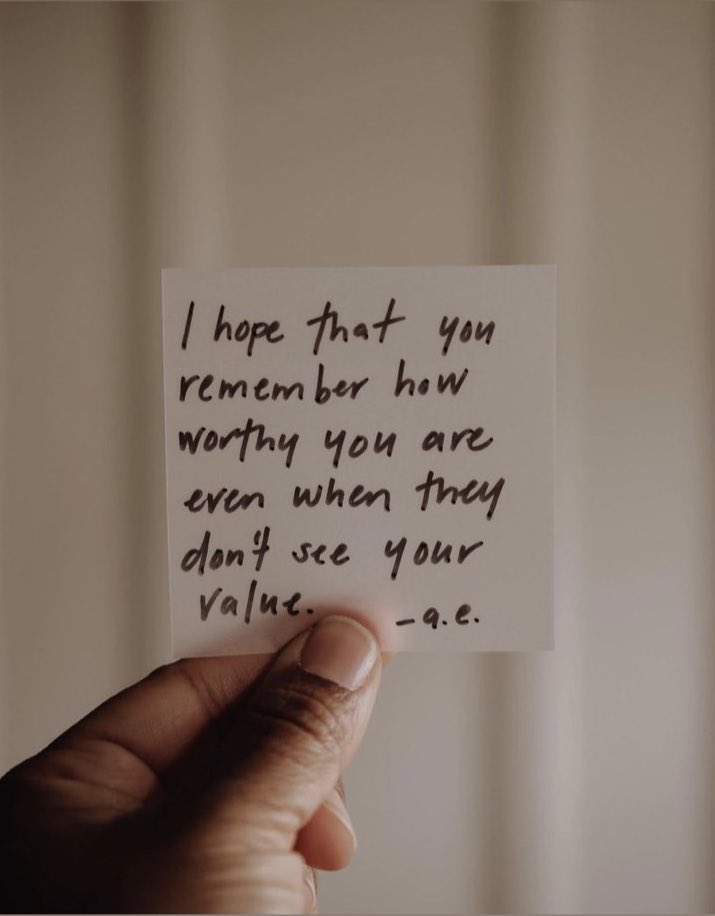 I hope that you
remember how
worthy you are
even when they
don't see your
value. -a.e.